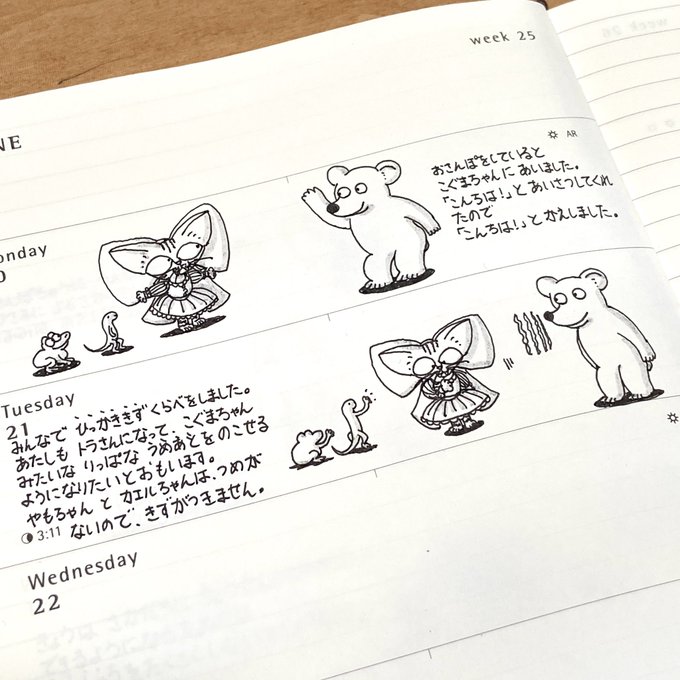 week 25
NE
onday
0
AR
おさんぽをしていると
こぐまちゃんに あいました。
「こんちは!」と あいさつしてくれ
たので
「こんちは!」と かえしました。
Tuesday
21
みんなで ひっかききず くらべをしました。
あたしも トラさんになって、こぐまちゃん
みたいな りっぱな つめあとを のこせる
ようになりたいとおもいます。
やもちゃん と カエルちゃんは、つめが
ないので、きずがつきません。
3:11
Wednesday
22